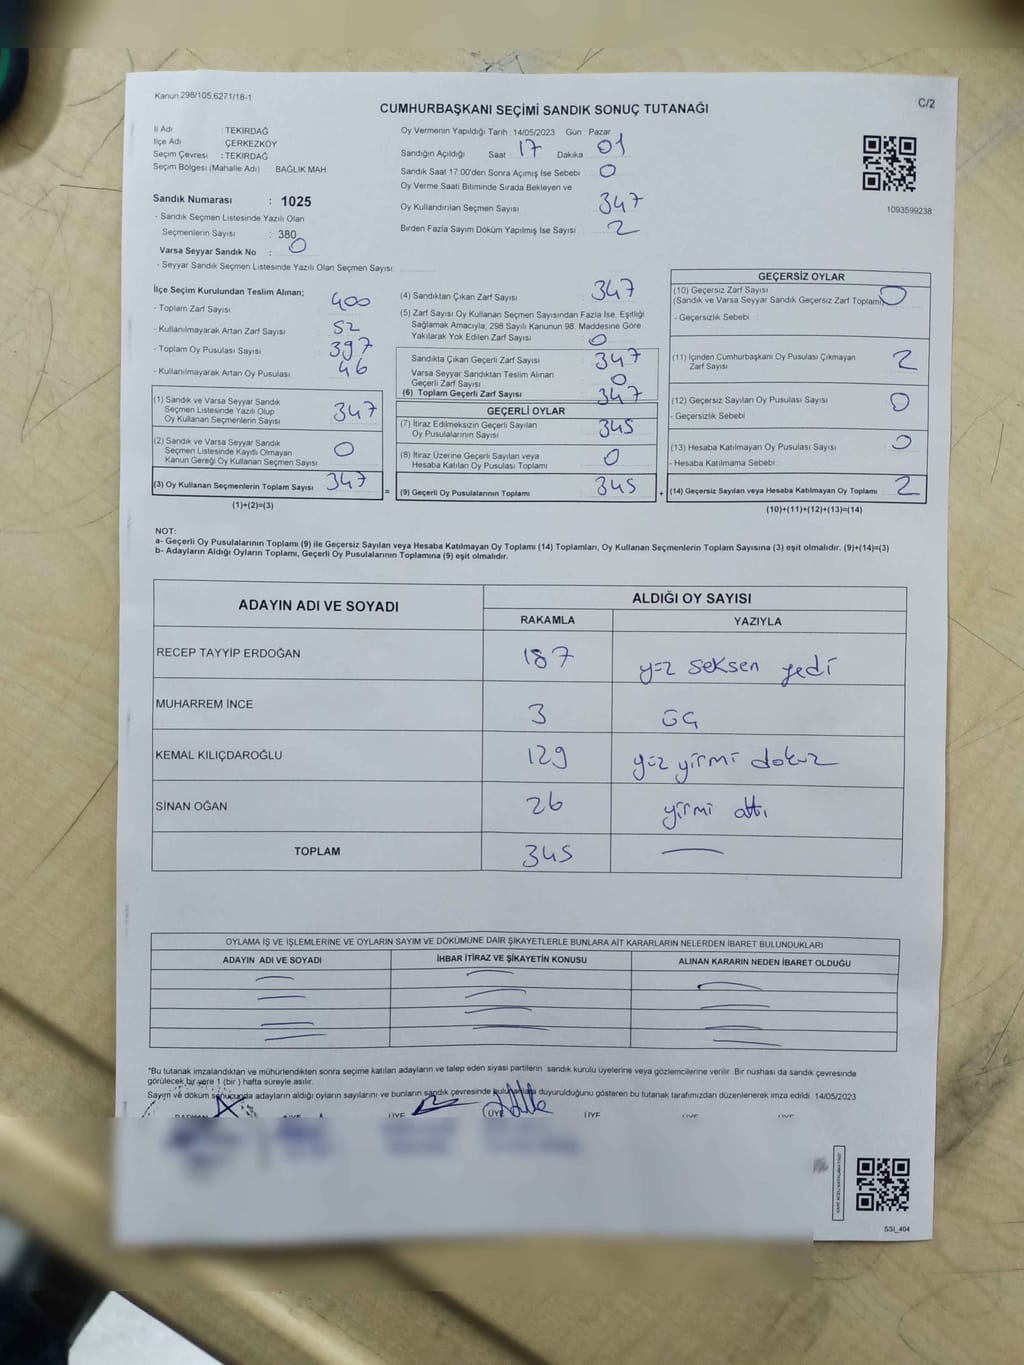 Kanun 298/105,6271/18-1
C/2
CUMHURBAŞKANI SEÇİMİ SANDIK SONUÇ TUTANAĞI
İl Adı : TEKİRDAĞ
İlçe Adı : ÇERKEZKÖY
Seçim Çevresi : TEKİRDAĞ
Seçim Bölgesi (Mahalle Adı) BAĞLIK MAH
Sandık Numarası : 1025
- Sandık Seçmen Listesinde Yazılı Olan
Seçmenlerin Sayısı : 380
Varsa Seyyar Sandık No : 0
- Seyyar Sandık Seçmen Listesinde Yazılı Olan Seçmen Sayısı:
Oy Vermenin Yapıldığı Tarih : 14/05/2023 Gün : Pazar
Sandığın Açıldığı Saat : 17 Dakika 01
Sandık Saat 17:00'den Sonra Açılmış İse Sebebi : 0
Oy Verme Saati Bitiminde Sırada Bekleyen ve
Oy Kullandırılan Seçmen Sayısı 347
Birden Fazla Sayım Döküm Yapılmış İse Sayısı 2
1093599238
İlçe Seçim Kurulundan Teslim Alınan;
- Toplam Zarf Sayısı 400
- Kullanılmayarak Artan Zarf Sayısı 52
- Toplam Oy Pusulası Sayısı 397
- Kullanılmayarak Artan Oy Pusulası 46
(1) Sandık ve Varsa Seyyar Sandık
Seçmen Listesinde Yazılı Olup
Oy Kullanan Seçmenlerin Sayısı 347
(2) Sandık ve Varsa Seyyar Sandık
Seçmen Listesinde Kayıtlı Olmayan
Kanun Gereği Oy Kullanan Seçmen Sayısı 0
(3) Oy Kullanan Seçmenlerin Toplam Sayısı 347
(1)+(2)=(3)
=
(4) Sandıktan Çıkan Zarf Sayısı 347
(5) Zarf Sayısı Oy Kullanan Seçmen Sayısından Fazla İse, Eşitliği
Sağlamak Amacıyla, 298 Sayılı Kanunun 98. Maddesine Göre
Yakılarak Yok Edilen Zarf Sayısı 0
Sandıkta Çıkan Geçerli Zarf Sayısı 347
Varsa Seyyar Sandıktan Teslim Alınan
Geçerli Zarf Sayısı 0
(6) Toplam Geçerli Zarf Sayısı 347
GEÇERLİ OYLAR
(7) İtiraz Edilmeksizin Geçerli Sayılan
Oy Pusulalarının Sayısı 345
(8) İtiraz Üzerine Geçerli Sayılan veya
Hesaba Katılan Oy Pusulası Toplamı 0
(9) Geçerli Oy Pusulalarının Toplamı 345
+
GEÇERSİZ OYLAR
(10) Geçersiz Zarf Sayısı
(Sandık ve Varsa Seyyar Sandık Geçersiz Zarf Toplamı) 0
- Geçersizlik Sebebi :
(11) İçinden Cumhurbaşkanı Oy Pusulası Çıkmayan
Zarf Sayısı 2
(12) Geçersiz Sayılan Oy Pusulası Sayısı 0
- Geçersizlik Sebebi :
(13) Hesaba Katılmayan Oy Pusulası Sayısı 0
- Hesaba Katılmama Sebebi :
(14) Geçersiz Sayılan veya Hesaba Katılmayan Oy Toplamı : 2
(10)+(11)+(12)+(13)=(14)
NOT:
a- Geçerli Oy Pusulalarının Toplamı (9) ile Geçersiz Sayılan veya Hesaba Katılmayan Oy Toplamı (14) Toplamları, Oy Kullanan Seçmenlerin Toplam Sayısına (3) eşit olmalıdır. (9)+(14)=(3)
b- Adayların Aldığı Oyların Toplamı, Geçerli Oy Pusulalarının Toplamına (9) eşit olmalıdır.
ADAYIN ADI VE SOYADI ALDIĞI OY SAYISI
RAKAMLA YAZIYLA
RECEP TAYYİP ERDOĞAN 187 yüz seksen yedi
MUHARREM İNCE 3 üç
KEMAL KILIÇDAROĞLU 129 yüz yirmi dokuz
SİNAN OĞAN 26 yirmi altı
TOPLAM 345
OYLAMA İŞ VE İŞLEMLERİNE VE OYLARIN SAYIM VE DÖKÜMÜNE DAİR ŞİKAYETLERLE BUNLARA AİT KARARLARIN NELERDEN İBARET BULUNDUKLARI
ADAYIN ADI VE SOYADI İHBAR İTİRAZ VE ŞİKAYETİN KONUSU ALINAN KARARIN NEDEN İBARET OLDUĞU
"Bu tutanak imzalandıktan ve mühürlendikten sonra seçime katılan adayların ve talep eden siyasi partilerin sandık kurulu üyelerine veya gözlemcilerine verilir. Bir nüshası da sandık çevresinde
görülecek bir yere 1 (bir ) hafta süreyle asılır.
Sayım ve döküm sonucunda adayların aldığı oyların sayılarını ve bunların sandık çevresinde bulunanlara duyurulduğunu gösteren bu tutanak tarafımızdan düzenlenerek imza edildi. 14/05/2023
ÜYE ÜYE ÜYE
SSI_404